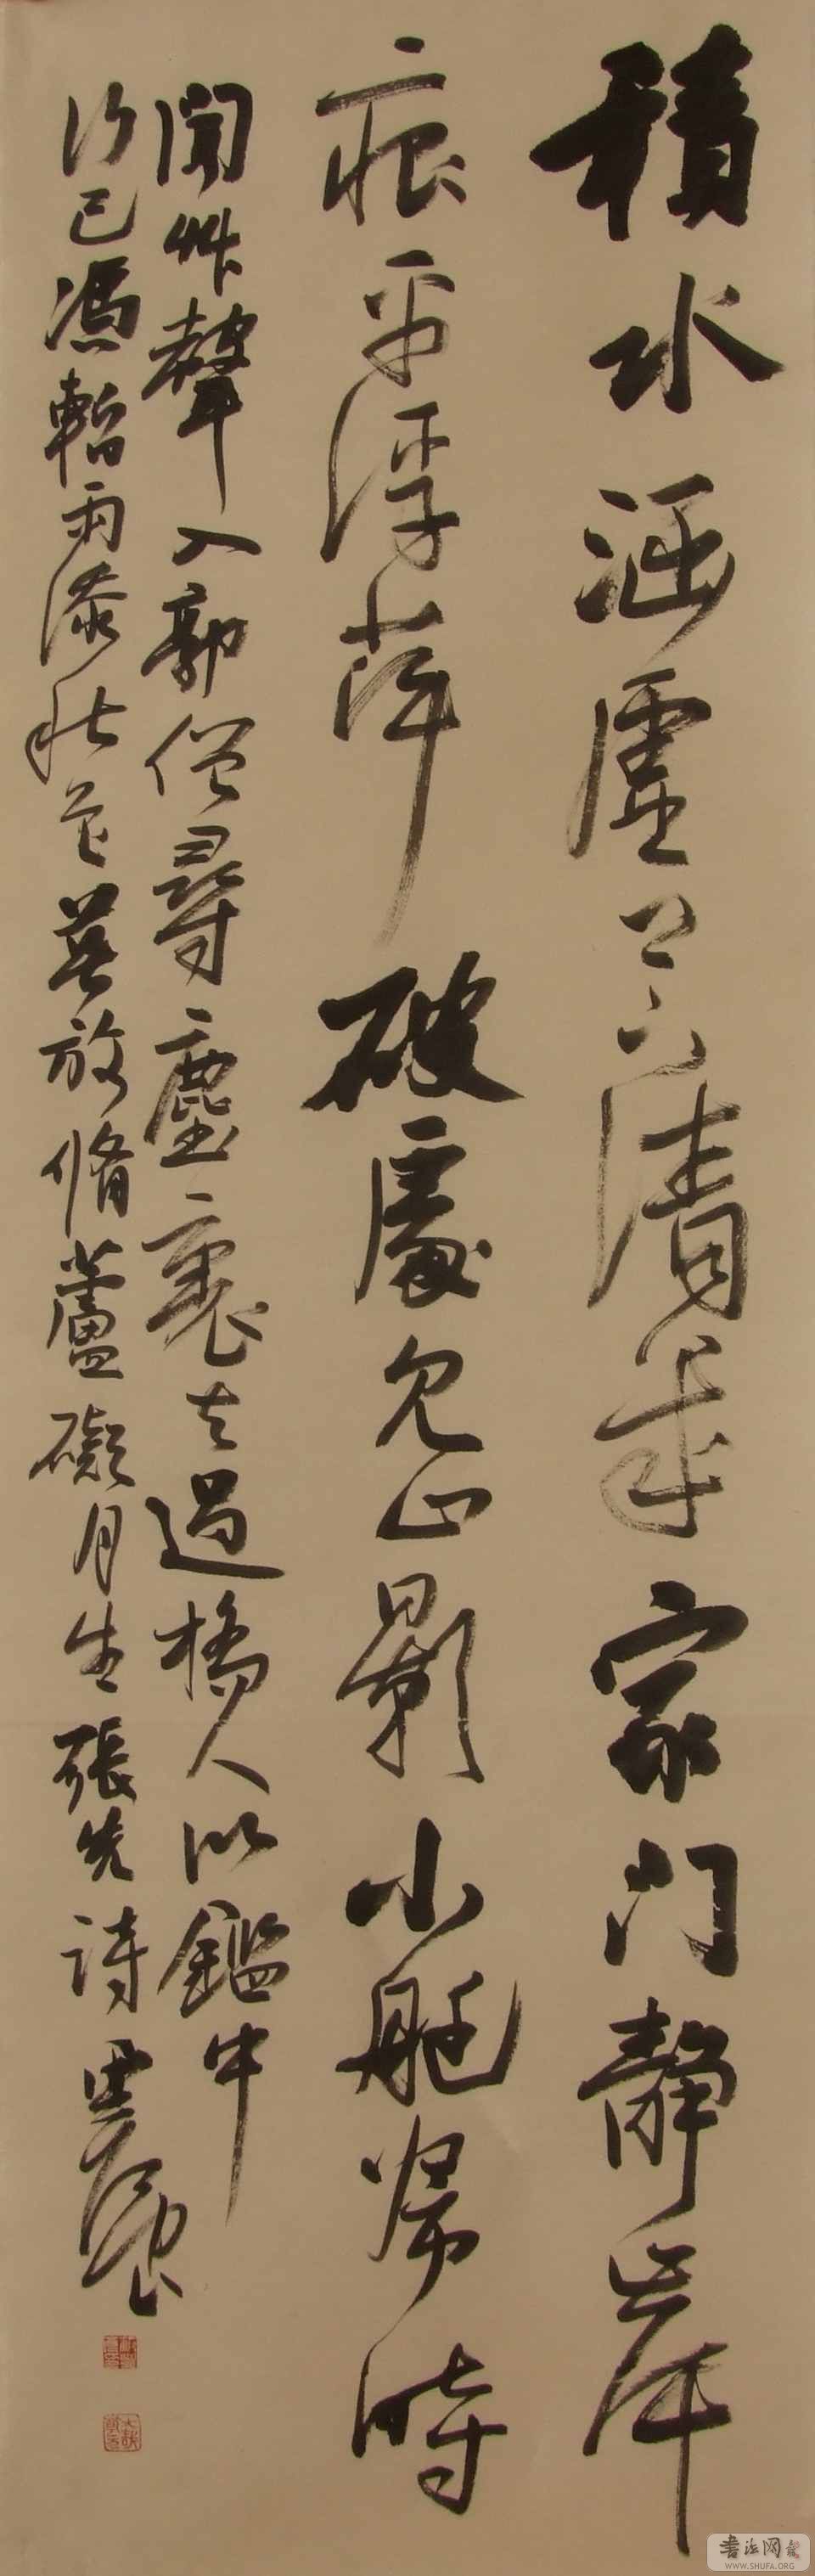 積水涵虛上下清幾家門靜岸
痕平浮萍破處見山影小艇歸時
聞艸聲入郭僧尋塵裏去過橋人似鑑中
行已憑暫雨添秋色莫放脩蘆礙月生張先詩
書法网
WWW.SHUFA.ORG